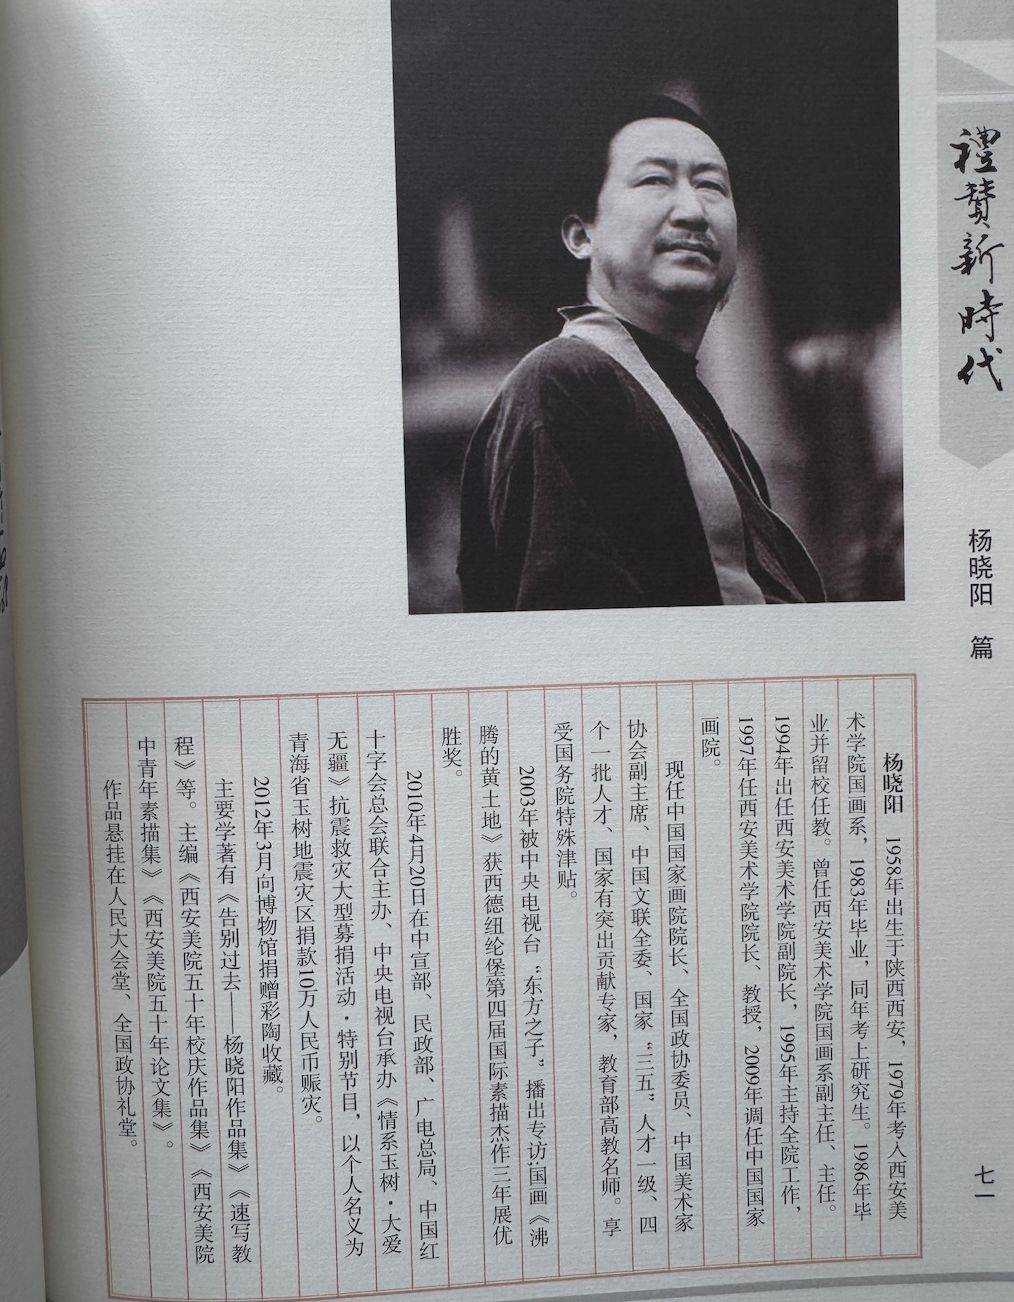 禮贊新時代
杨晓阳 篇
七一
杨晓阳 1958年出生于陕西西安，1979年考入西安美
术学院国画系，1983年毕业，同年考上研究生。1986年毕
业并留校任教。曾任西安美术学院国画系副主任、主任。
1994年出任西安美术学院副院长，1995年主持全院工作，
1997年任西安美术学院院长、教授，2009年调任中国国家
画院。
现任中国国家画院院长、全国政协委员、中国美术家
协会副主席、中国文联全委、国家“三五”人才一级、四
个一批人才、国家有突出贡献专家，教育部高教名师。享
受国务院特殊津贴。
2003年被中央电视台“东方之子”播出专访;国画《沸
腾的黄土地》获西德纽纶堡第四届国际素描杰作三年展优
胜奖。
2010年4月20日在中宣部、民政部、广电总局、中国红
十字会总会联合主办、中央电视台承办《情系玉树·大爱
无疆》抗震救灾大型募捐活动·特别节目，以个人名义为
青海省玉树地震灾区捐款10万人民币赈灾。
2012年3月向博物馆捐赠彩陶收藏。
主要学著有《告别过去——杨晓阳作品集》《速写教
程》等。主编《西安美院五十年校庆作品集》《西安美院
中青年素描集》《西安美院五十年论文集》。
作品悬挂在人民大会堂、全国政协礼堂。